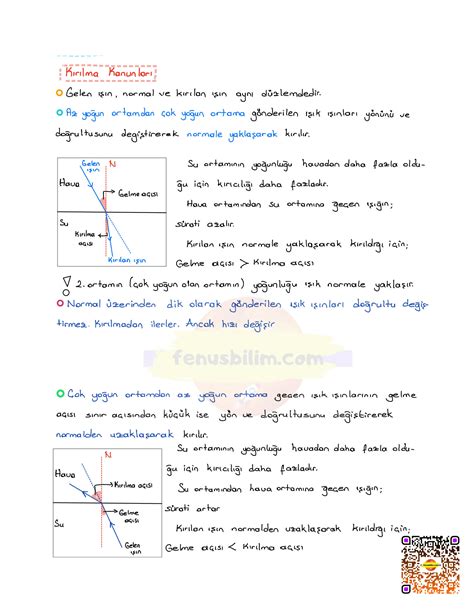 Kırılma Kanunları
Gelen ışın, normal ve kırılan ışın aynı düzlemdedir.
Az yoğun ortamdan çok yoğun ortama gönderilen ışık ışınları yönünü ve
doğrultusunu değiştirerek normale yaklaşarak kırılır.
Gelen
ışın
N
Hava
Gelme açısı
Su
Kırılma
açısı
Kırılan ışın
Su ortamının yoğunluğu havadan daha fazla oldu-
ğu için kırıcılığı daha fazladır.
Hava ortamından su ortamına geçen ışığın;
sürati azalır.
Kırılan ışın normale yaklaşarak kırıldığı için;
Gelme açısı > Kırılma açısı
2. ortamın (çok yoğun olan ortamın) yoğunluğu ışık normale yaklaşır.
Normal üzerinden dik olarak gönderilen ışık ışınları doğrultu değiş-
tirmez. Kırılmadan ilerler. Ancak hızı değişir
fenusbilim.com
Çok yoğun ortamdan az yoğun ortama geçen ışık ışınlarının gelme
açısı sınır açısından küçük ise yön ve doğrultusunu değiştirerek
normalden uzaklaşarak kırılır.
N
Hava
Kırılma açısı
Gelme
açısı
Su
Gelen
ışın
Su ortamının yoğunluğu havadan daha fazla oldu-
ğu için kırıcılığı daha fazladır.
Su ortamından hava ortamına geçen ışığın;
sürati artar
Kırılan ışın normalden uzaklaşarak kırıldığı için;
Gelme açısı < Kırılma açısı